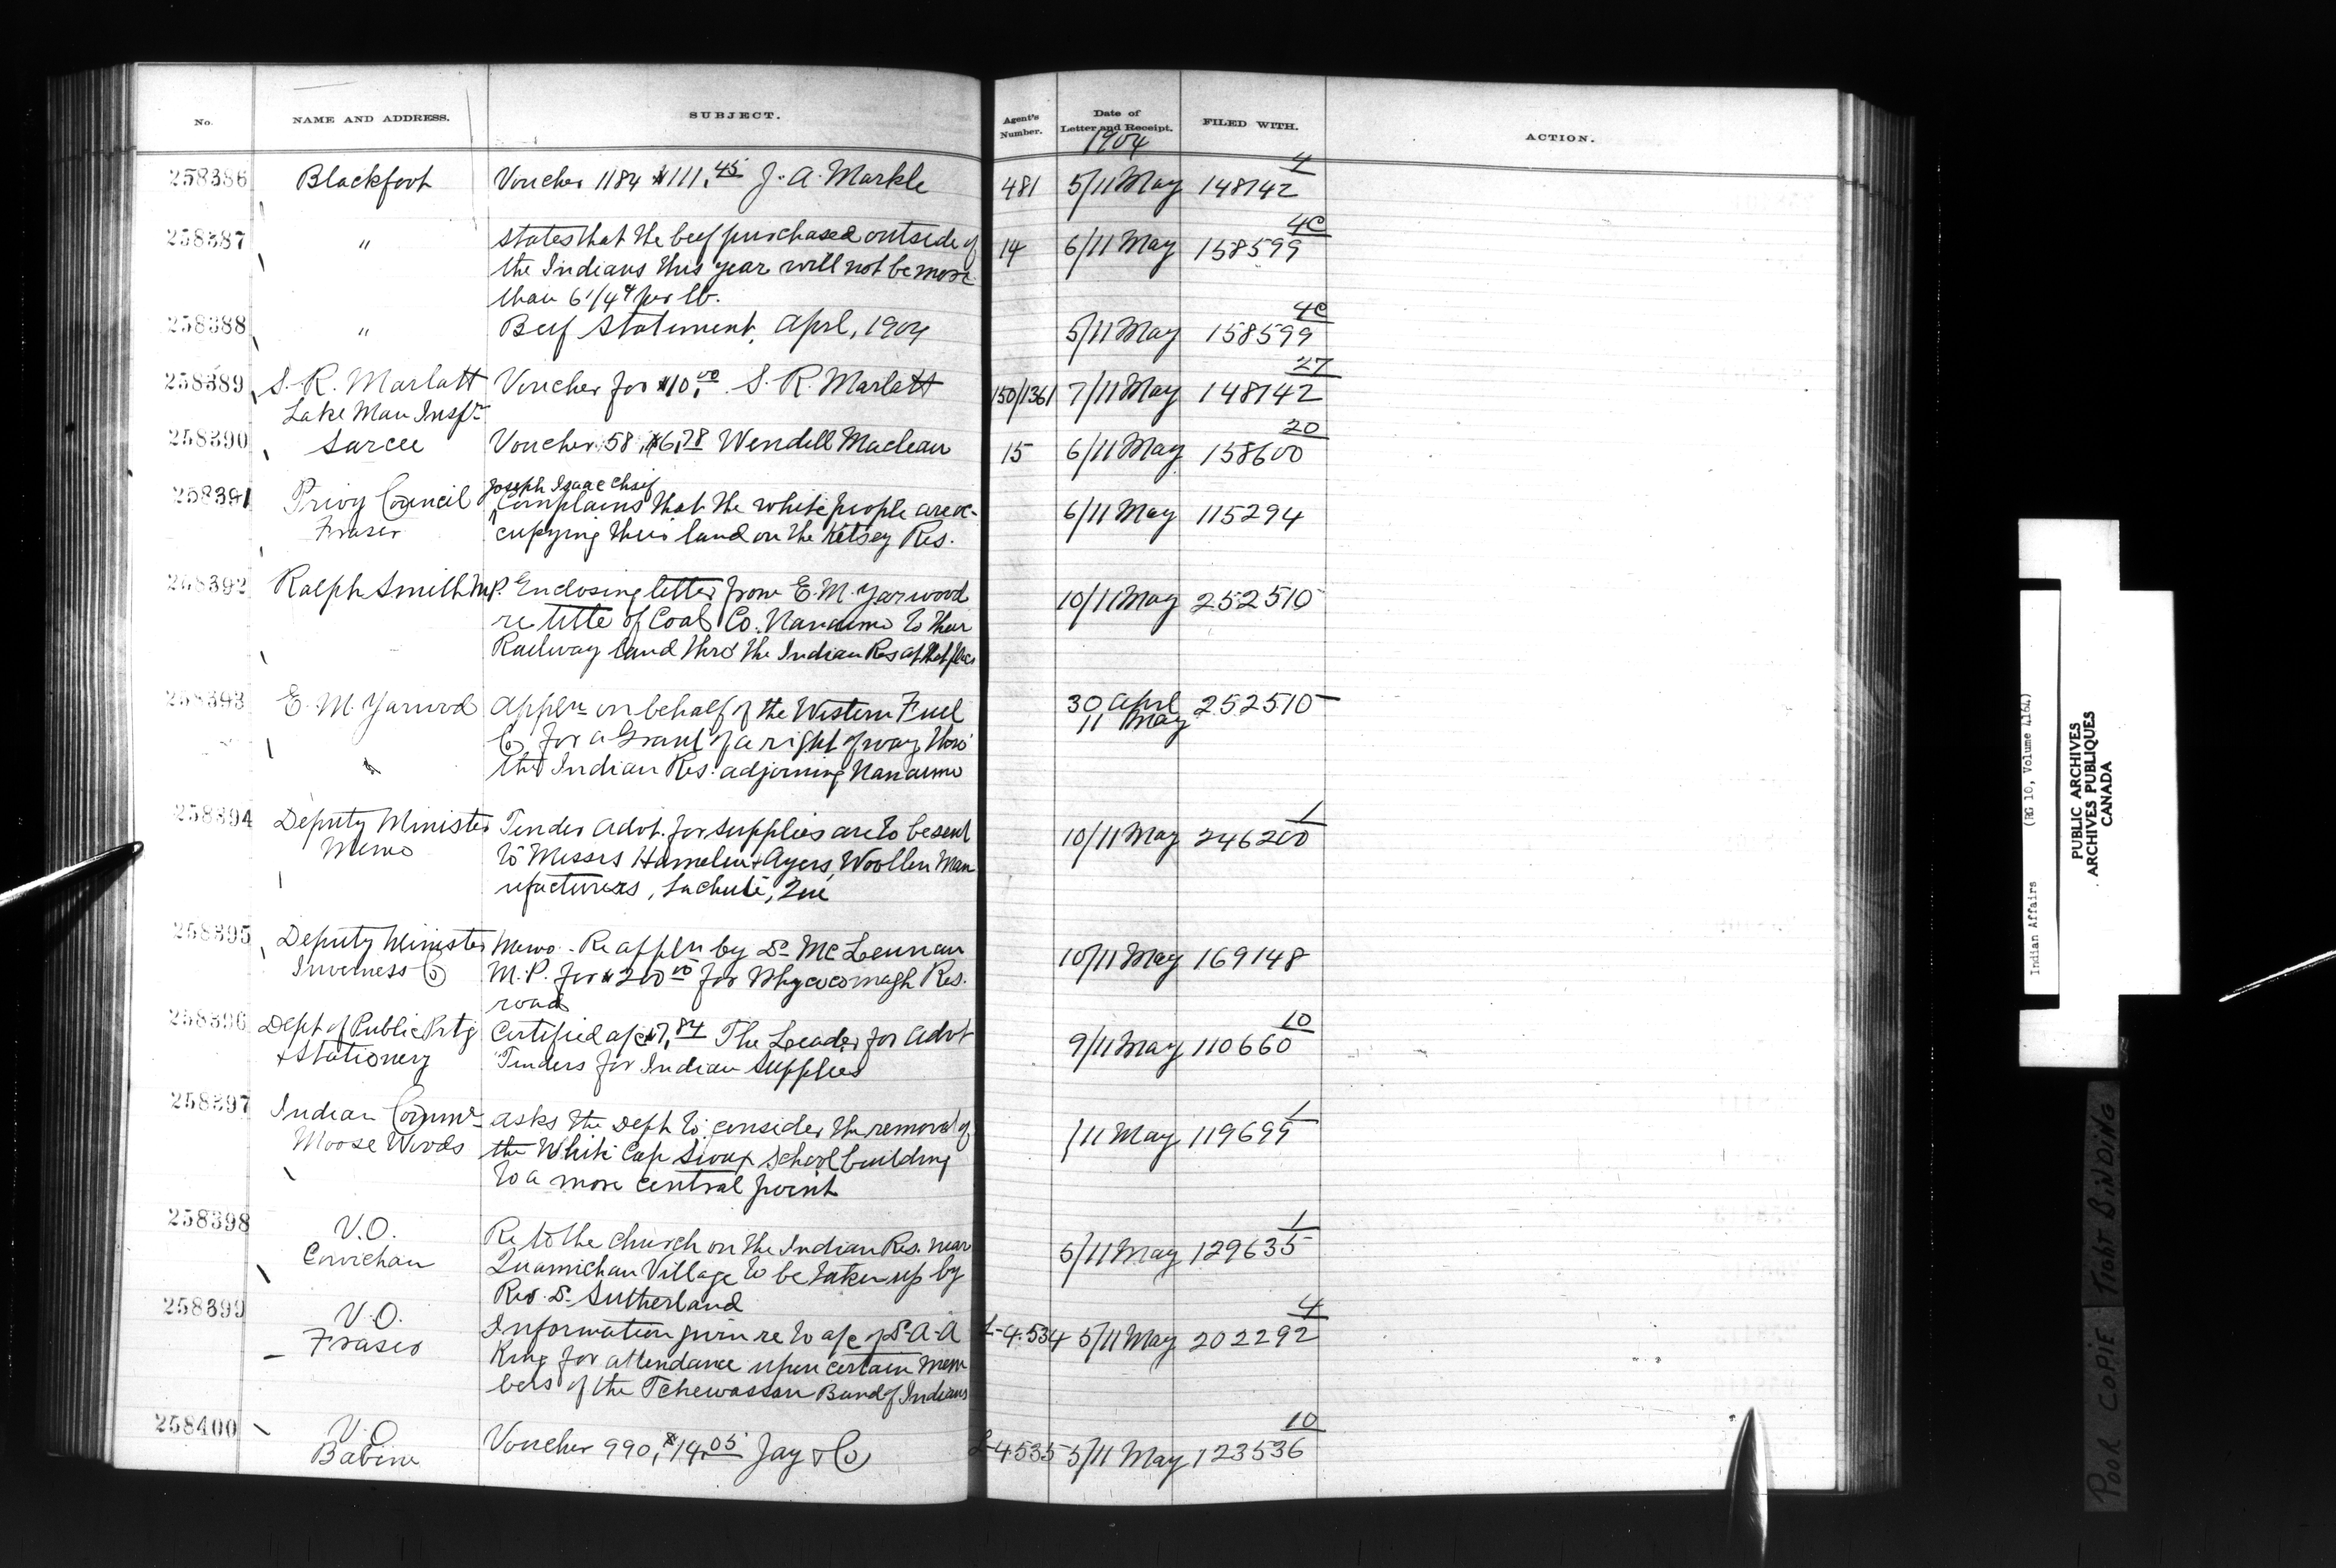 No. NAME AND ADDRESS. SUBJECT. Agent's Number. Date of Letter and Receipt. FILED WITH. ACTION.
1904
258386 Blackfoot Voucher 1184 $111.45 J. A. Markle 481 5/11 May 4 148142
258387 " States that the beef purchased outside of 14 6/11 May 4C 158599
the Indians this year will not be more
than 6 1/4¢ per lb.
258388 " Beef Statement, April, 1904 5/11 May 4C 158599
258389 S. R. Marlatt Voucher for $10.00 S. R. Marlatt 150/1361 7/11 May 27 148142
Lake Man Inspr
258390 Sarcee Voucher 58, $6.78 Wendell Maclean 15 6/11 May 20 158600
258391 Privy Council Joseph Isaac Chief
Complains that the white people are oc- 6/11 May 115294
Fraser cupying their land on the Ketsey Res.
258392 Ralph Smith M.P. Enclosing letter from E. M. Yarwood 10/11 May 252510
re title of Coal Co. Nanaimo to their
Railway land thro' the Indian Res at that place
258393 E. M. Yarwood Appln on behalf of the Western Fuel 30 April 252510
11 May
Co for a Grant of a right of way thro'
" the Indian Res. adjoining Nanaimo
258394 Deputy Minister Tender Advt. for supplies are to be sent 10/11 May 1 246200
Memo to Messrs Hamelin & Ayers, Woollen Man
ufacturers, Lachute, Que
258395 Deputy Minister Memo - Re appln by Dr McLennan 10/11 May 169148
Inverness Co M.P. for $200.00 for Whycocomagh Res.
road
258396 Dept of Public Prtg Certified a/c $7.84 The Leader for Advt 9/11 May 10 110660
& Stationery Tenders for Indian Supplies
258397 Indian Commr asks the Dept to consider the removal of /11 May 1 119699
Moose Woods the White Cap Sioux School building
to a more central point
258398 V.O. Re to the church on the Indian Res. near 5/11 May 1 129635
Cowichan Quamichan Village to be taken up by
Rev. Dr Sutherland
258399 V.O. Information given re to a/c of Dr A. A L-4534 5/11 May 4 202292
Fraser King for attendance upon certain mem
bers of the Tchewassan Band of Indians
258400 V.O Voucher 990, $14.05 Jay & Co L-4535 5/11 May 10 123536
Babine
Indian Affairs (RG 10, Volume 4164)
PUBLIC ARCHIVES
ARCHIVES PUBLIQUES
CANADA
POOR COPIE TIGHT BINDING